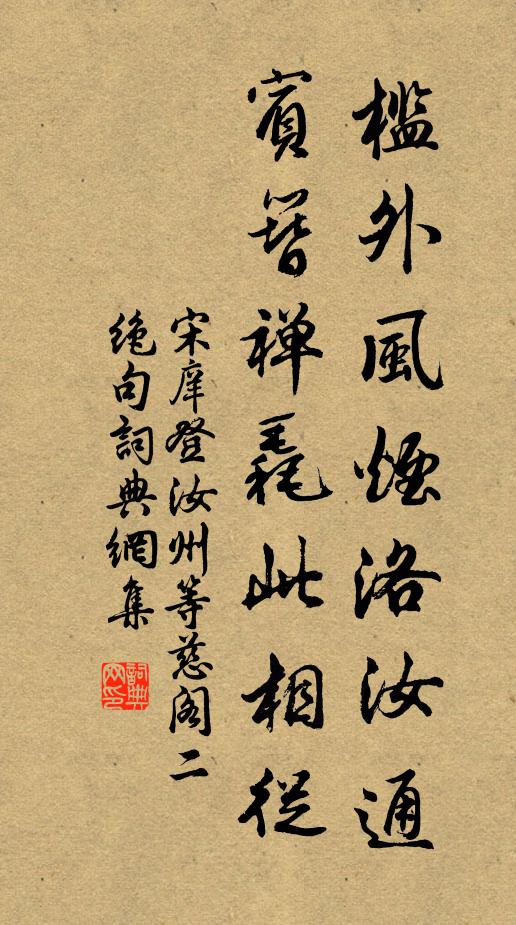 檻外風煙洛汝通
賓簪禪毳此相從
宋庠登汝州等慈閣二
絶句詞典網集
詞典
网印